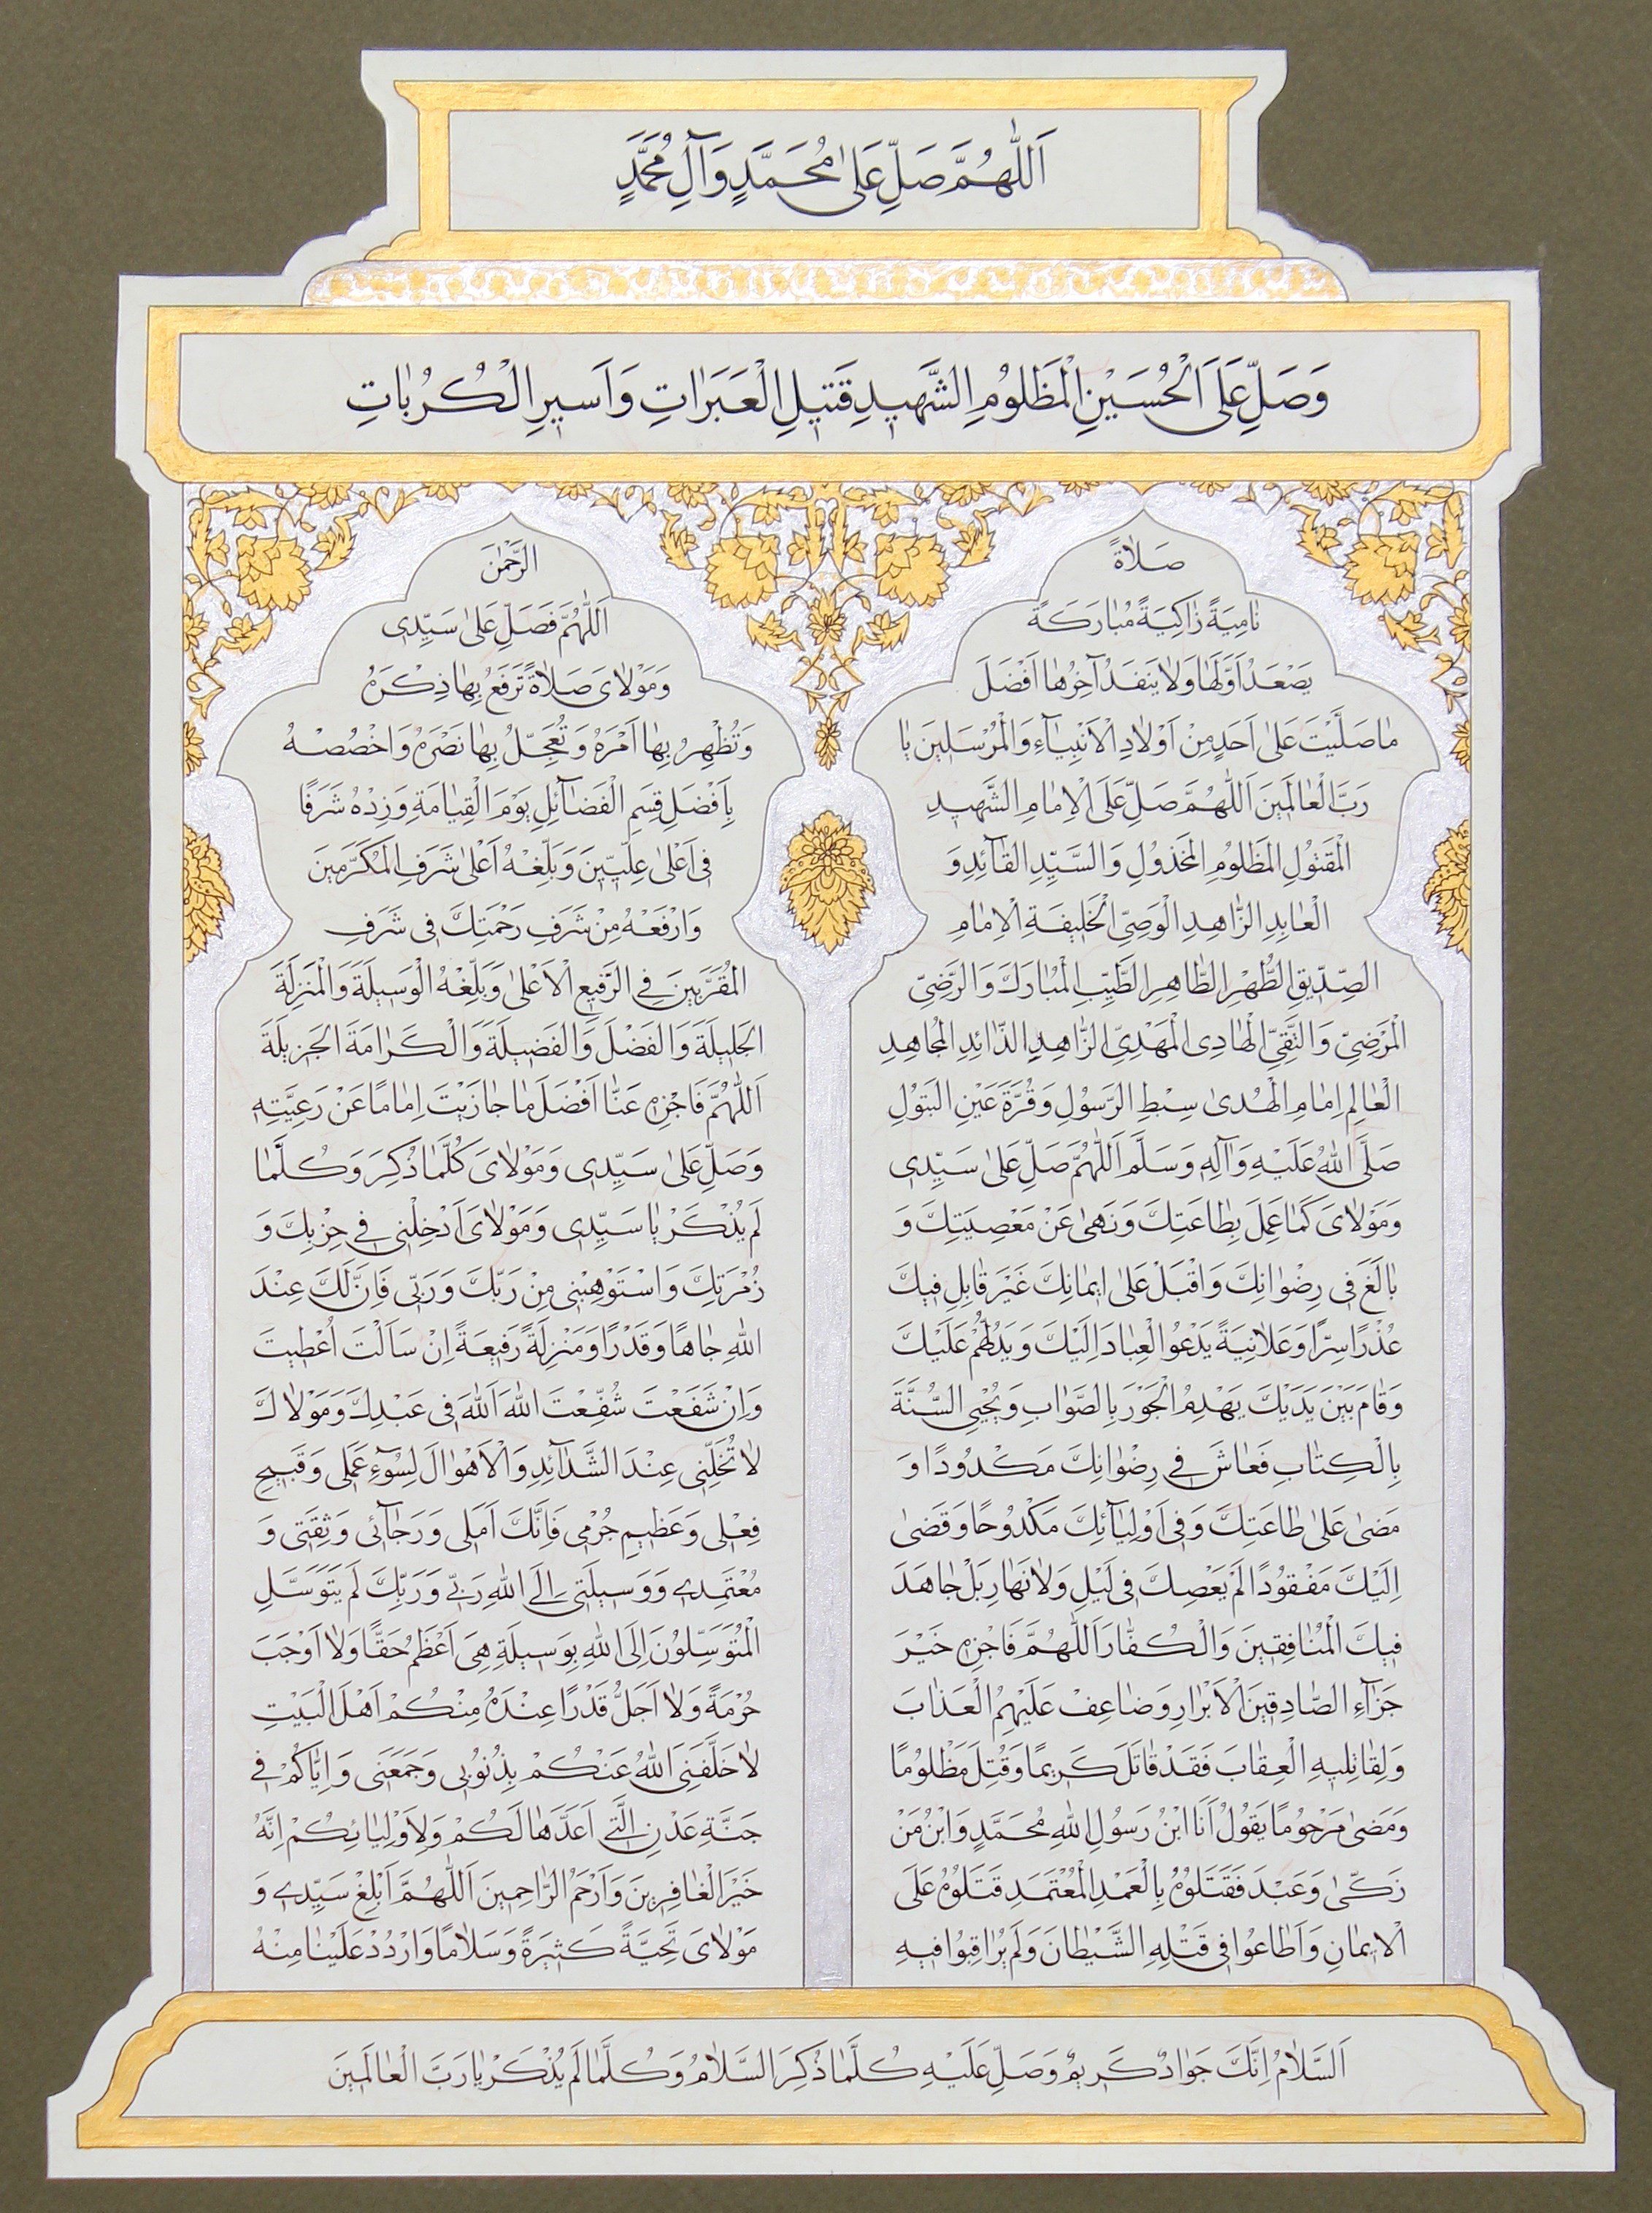 اَللّٰهُمَّ صَلِّ عَلىٰ مُحَمَّدٍ وَآلِ مُحَمَّدٍ
وَصَلِّ عَلَى الْحُسَيْنِ الْمَظْلُومِ الشَّهيدِ قَتيلِ الْعَبَرٰاتِ وَاَسيرِ الْكُرُبٰاتِ
صَلاٰةً
نٰامِيَةً زٰاكِيَةً مُبٰارَكَةً
يَصْعَدُ اَوَّلُهٰا وَلاٰ يَنفَدُ آخِرُهٰا اَفْضَلَ
مٰا صَلَّيْتَ عَلىٰ اَحَدٍ مِنْ اَوْلاٰدِ الْاَنْبِيٰآءِ وَالْمُرْسَلينَ يٰا
رَبَّ الْعٰالَمينَ اَللّٰهُمَّ صَلِّ عَلَى الْاِمٰامِ الشَّهيدِ
الْمَقْتُولِ الْمَظْلُومِ الْمَخْذُولِ وَالسَّيِّدِ الْقٰآئِدِ وَ
الْعٰابِدِ الزّٰاهِدِ الْوَصِىِّ الْخَليفَةِ الْاِمٰامِ
الصِّدّيقِ الطُّهْرِ الطّٰاهِرِ الطَّيِّبِ الْمُبٰارَكَ وَالرَّضِىِّ
الْمَرْضِىِّ وَالتَّقِىِّ الْهٰادِى الْمَهْدِىِّ الزّٰاهِدِ الذّٰائِدِ الْمُجٰاهِدِ
الْعٰالِمِ اِمٰامِ الْهُدىٰ سِبْطِ الرَّسُولِ وَقُرَّةِ عَيْنِ الْبَتُولِ
صَلَّى اللهُ عَلَيْهِ وَآلِهِ وَسَلَّمَ اَللّٰهُمَّ صَلِّ عَلىٰ سَيِّدِى
وَمَوْلاٰىَ كَمٰا عَمِلَ بِطٰاعَتِكَ وَنَهىٰ عَنْ مَعْصِيَتِكَ وَ
بٰالَغَ فى رِضْوٰانِكَ وَاَقْبَلَ عَلىٰ ايمٰانِكَ غَيْرَ قٰابِلٍ فيكَ
عُذْرًا سِرًّا وَعَلاٰنِيَةً يَدْعُو الْعِبٰادَ اِلَيْكَ وَيَدُلُّهُمْ عَلَيْكَ
وَقٰامَ بَيْنَ يَدَيْكَ يَهْدِمُ الْجَوْرَ بِالصَّوٰابِ وَيُحْيِى السُّنَّةَ
بِالْكِتٰابِ فَعٰاشَ فى رِضْوٰانِكَ مَكْدُودًا وَ
مَضىٰ عَلىٰ طٰاعَتِكَ وَفى اَوْلِيٰآئِكَ مَكْدُوحًا وَقَضىٰ
اِلَيْكَ مَفْقُودًا لَمْ يَعْصِكَ فى لَيْلٍ وَلاٰ نَهٰارٍ بَلْ جٰاهَدَ
فيكَ الْمُنٰافِقينَ وَالْكُفّٰارَ اَللّٰهُمَّ فَاجْزِهِ خَيْرَ
جَزٰآءِ الصّٰادِقينَ الْاَبْرٰارِ وَضٰاعِفْ عَلَيْهِمُ الْعَذٰابَ
وَلِقٰاتِليهِ الْعِقٰابَ فَقَدْ قٰاتَلَ كَريمًا وَقُتِلَ مَظْلُومًا
وَمَضىٰ مَرْحُومًا يَقُولُ اَنَا ابْنُ رَسُولِ اللهِ مُحَمَّدٍ وَابْنُ مَنْ
زَكّىٰ وَعَبَدَ فَقَتَلُوهُ بِالْعَمْدِ الْمُعْتَمَدِ قَتَلُوهُ عَلَى
الْايمٰانِ وَاَطٰاعُوا فى قَتْلِهِ الشَّيْطٰانَ وَلَمْ يُرٰاقِبُوا فيهِ
الرَّحْمٰنَ
اَللّٰهُمَّ فَصَلِّ عَلىٰ سَيِّدِى
وَمَوْلاٰىَ صَلاٰةً تَرْفَعُ بِهٰا ذِكْرَهُ
وَتُظْهِرُ بِهٰا اَمْرَهُ وَتُعَجِّلُ بِهٰا نَصْرَهُ وَاخْصُصْهُ
بِاَفْضَلِ قِسَمِ الْفَضٰآئِلِ يَوْمَ الْقِيٰامَةِ وَزِدْهُ شَرَفًا
فى اَعْلىٰ عِلِّيّينَ وَبَلِّغْهُ اَعْلىٰ شَرَفِ الْمُكَرَّمينَ
وَارْفَعْهُ مِنْ شَرَفِ رَحْمَتِكَ فى شَرَفِ
الْمُقَرَّبينَ فِى الرَّفيعِ الْاَعْلىٰ وَبَلِّغْهُ الْوَسيلَةَ وَالْمَنْزِلَةَ
الْجَليلَةَ وَالْفَضْلَ وَالْفَضيلَةَ وَالْكَرٰامَةَ الْجَزيلَةَ
اَللّٰهُمَّ فَاجْزِهِ عَنّٰا اَفْضَلَ مٰا جٰازَيْتَ اِمٰامًا عَنْ رَعِيَّتِهِ
وَصَلِّ عَلىٰ سَيِّدِى وَمَوْلاٰىَ كُلَّمٰا ذُكِرَ وَكُلَّمٰا
لَمْ يُذْكَرْ يٰا سَيِّدِى وَمَوْلاٰىَ اَدْخِلْنى فى حِزْبِكَ وَ
زُمْرَتِكَ وَاسْتَوْهِبْنى مِنْ رَبِّكَ وَرَبّى فَاِنَّ لَكَ عِنْدَ
اللهِ جٰاهًا وَقَدْرًا وَمَنْزِلَةً رَفيعَةً اِنْ سَاَلْتَ اُعْطيتَ
وَاِنْ شَفَعْتَ شُفِّعْتَ اللهَ اَللهَ فى عَبْدِكَ وَمَوْلاٰكَ
لاٰ تُخَلِّنى عِنْدَ الشَّدٰآئِدِ وَالْاَهْوٰالِ لِسُوٓءِ عَمَلى وَقَبيحِ
فِعْلى وَعَظيمِ جُرْمى فَاِنَّكَ اَمَلى وَرَجٰآئى وَثِقَتى وَ
مُعْتَمَدى وَوَسيلَتى اِلَى اللهِ رَبّى وَرَبِّكَ لَمْ يَتَوَسَّلِ
الْمُتَوَسِّلُونَ اِلَى اللهِ بِوَسيلَةٍ هِىَ اَعْظَمُ حَقًّا وَلاٰ اَوْجَبَ
حُرْمَةً وَلاٰ اَجَلُّ قَدْرًا عِنْدَهُ مِنْكُمْ اَهْلَ الْبَيْتِ
لاٰ خَلَّفَنِىَ اللهُ عَنْكُمْ بِذُنُوبى وَجَمَعَنى وَاِيّٰاكُمْ فى
جَنَّةِ عَدْنٍ الَّتى اَعَدَّهٰا لَكُمْ وَلِاَوْلِيٰائِكُمْ اِنَّهُ
خَيْرُ الْغٰافِرينَ وَاَرْحَمُ الرّٰاحِمينَ اَللّٰهُمَّ اَبْلِغْ سَيِّدى وَ
مَوْلاٰىَ تَحِيَّةً كَثيرَةً وَسَلاٰمًا وَارْدُدْ عَلَيْنٰا مِنْهُ
اَلسَّلاٰمُ اِنَّكَ جَوٰادٌ كَريمٌ وَصَلِّ عَلَيْهِ كُلَّمٰا ذُكِرَ السَّلاٰمُ وَكُلَّمٰا لَمْ يُذْكَرْ يٰا رَبَّ الْعٰالَمينَ